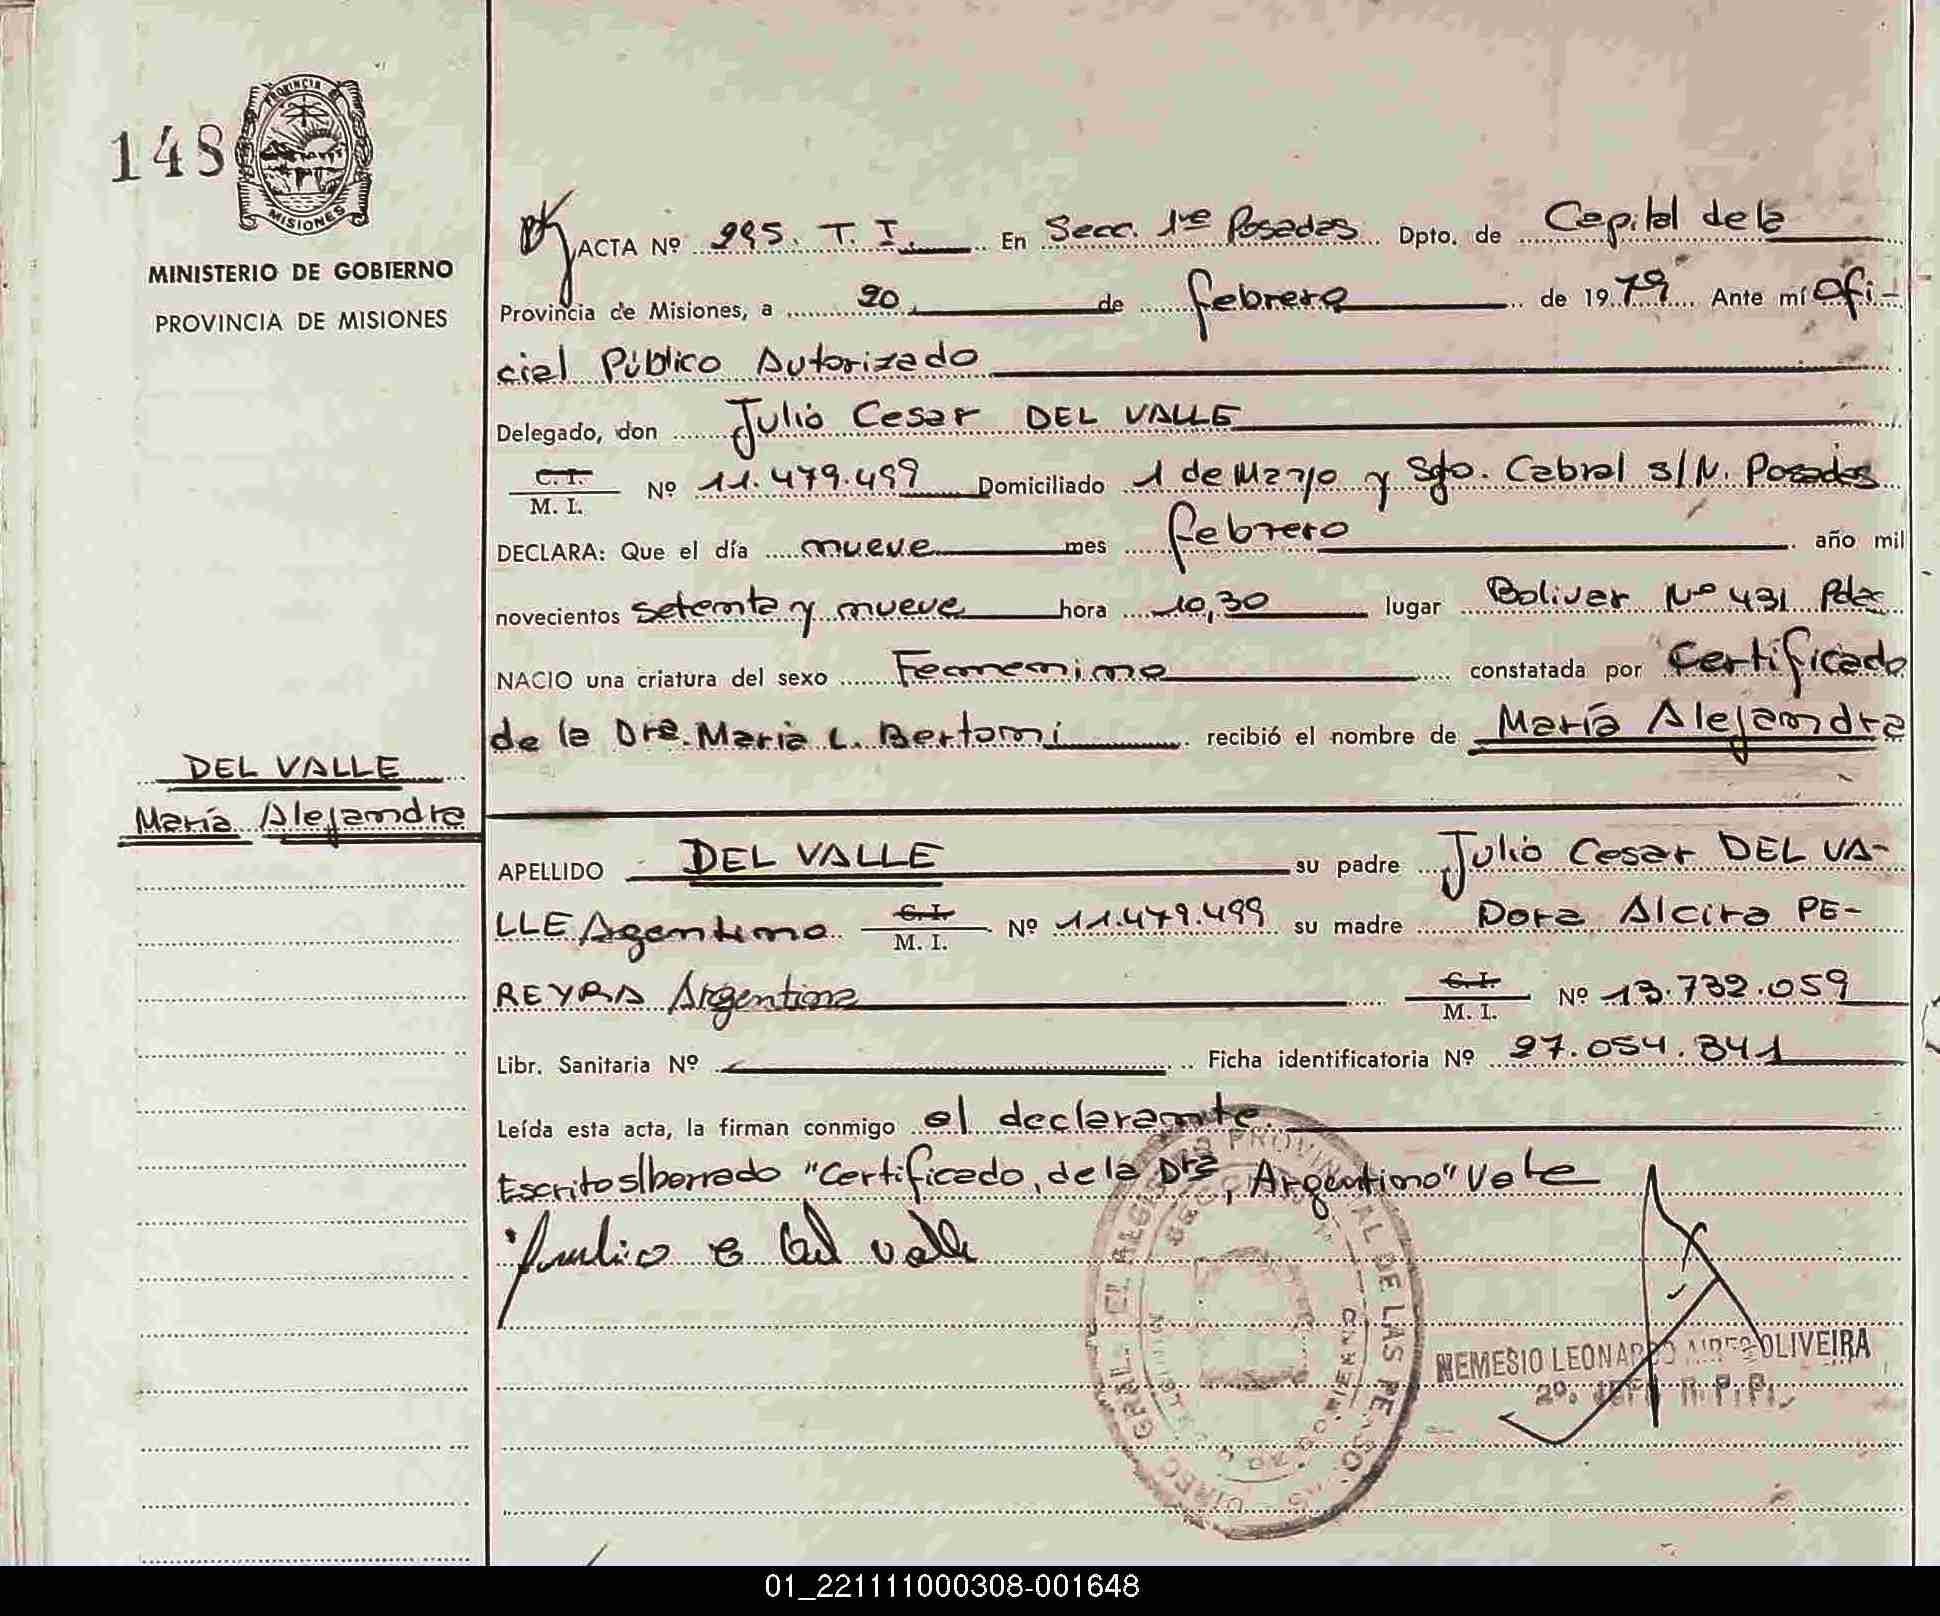 148
PROVINCIA DE
MISIONES
MINISTERIO DE GOBIERNO
PROVINCIA DE MISIONES
ACTA Nº 295. T. I. En Secc. 1ra Posadas Dpto. de Capital de la
Provincia de Misiones, a 20 de febrero de 1979 Ante mí Ofi-
cial Público Autorizado
Delegado, don Julio Cesar DEL VALLE
C. I.
M. I. Nº 11.479.499 Domiciliado 1 de Mayo y Sgto. Cabral s/N. Posadas
DECLARA: Que el día nueve mes febrero año mil
novecientos setenta y nueve hora 10,30 lugar Bolivar Nº 431 Pdas
NACIO una criatura del sexo Femenino constatada por Certificado
de la Dra. Maria L. Bertoni recibió el nombre de María Alejandra
DEL VALLE
María Alejandra
APELLIDO DEL VALLE su padre Julio Cesar DEL VA-
LLE Agentino C. I.
M. I. Nº 11.479.499 su madre Dora Alcira PE-
REYRA Argentina C. I.
M. I. Nº 13.732.059
Libr. Sanitaria Nº Ficha identificatoria Nº 27.054.341
Leída esta acta, la firman conmigo el declarante
Escrito s/borrado "Certificado, de la Dra, Argentino" Vale
Julio C del valle
PROVINCIAL DE LAS PE
NEMESIO LEONARDO OLIVEIRA
2º. JEFE R. P. P.
01_221111000308-001648